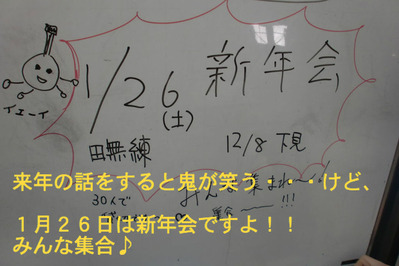 1/26 新年会
(土)
イエーイ
田無練 12/8 下見
みんな集まれ〜い!!!
30人で
集合
来年の話をすると鬼が笑う・・・けど、
１月２６日は新年会ですよ！！
みんな集合♪